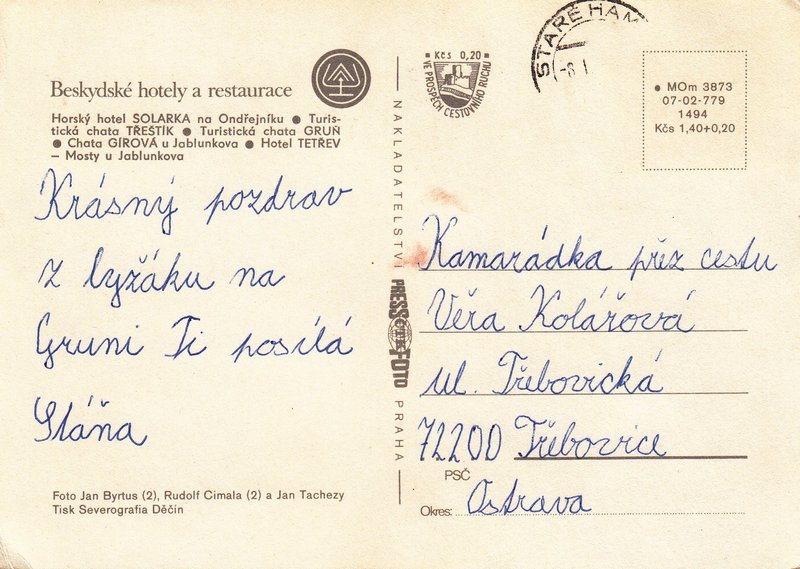 Beskydské hotely a restaurace
Horský hotel SOLARKA na Ondřejníku ● Turis-
tická chata TŘEŠTÍK ● Turistická chata GRUŇ
● Chata GÍROVÁ u Jablunkova ● Hotel TETŘEV
– Mosty u Jablunkova
Krásný pozdrav
z lyžáku na
Gruni Ti posílá
Sláňa
Foto Jan Byrtus (2), Rudolf Cimala (2) a Jan Tachezy
Tisk Severografia Děčín
NAKLADATELSTVÍ
PRESSFOTO
PRAHA
Kčs 0,20
VE PROSPĚCH CESTOVNÍHO RUCHU
STARÉ HAM
-8.1
● MOm 3873
07-02-779
1494
Kčs 1,40+0,20
Kamarádka přez cestu
Věra Kolářová
ul. Třebovická
72200 Třebovice
PSČ
Okres: Ostrava